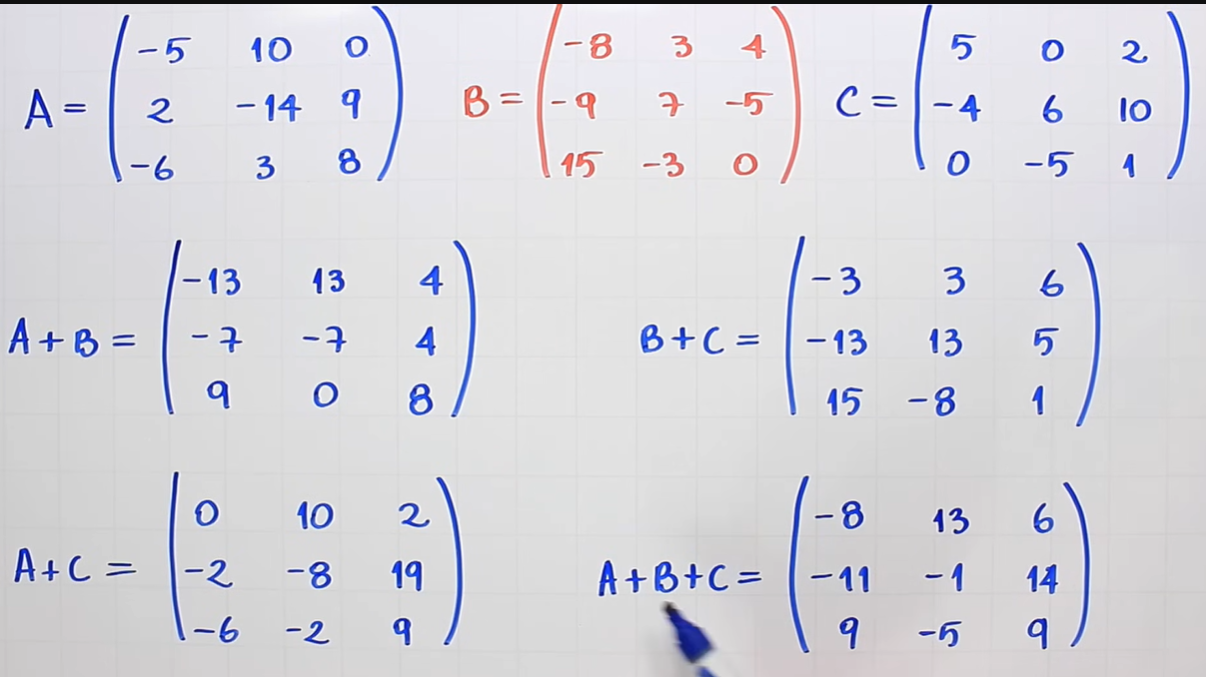 A = (-5 10 0
2 -14 9
-6 3 8)
B = (-8 3 4
-9 7 -5
15 -3 0)
C = (5 0 2
-4 6 10
0 -5 1)
A+B = (-13 13 4
-7 -7 4
9 0 8)
B+C = (-3 3 6
-13 13 5
15 -8 1)
A+C = (0 10 2
-2 -8 19
-6 -2 9)
A+B+C = (-8 13 6
-11 -1 14
9 -5 9)